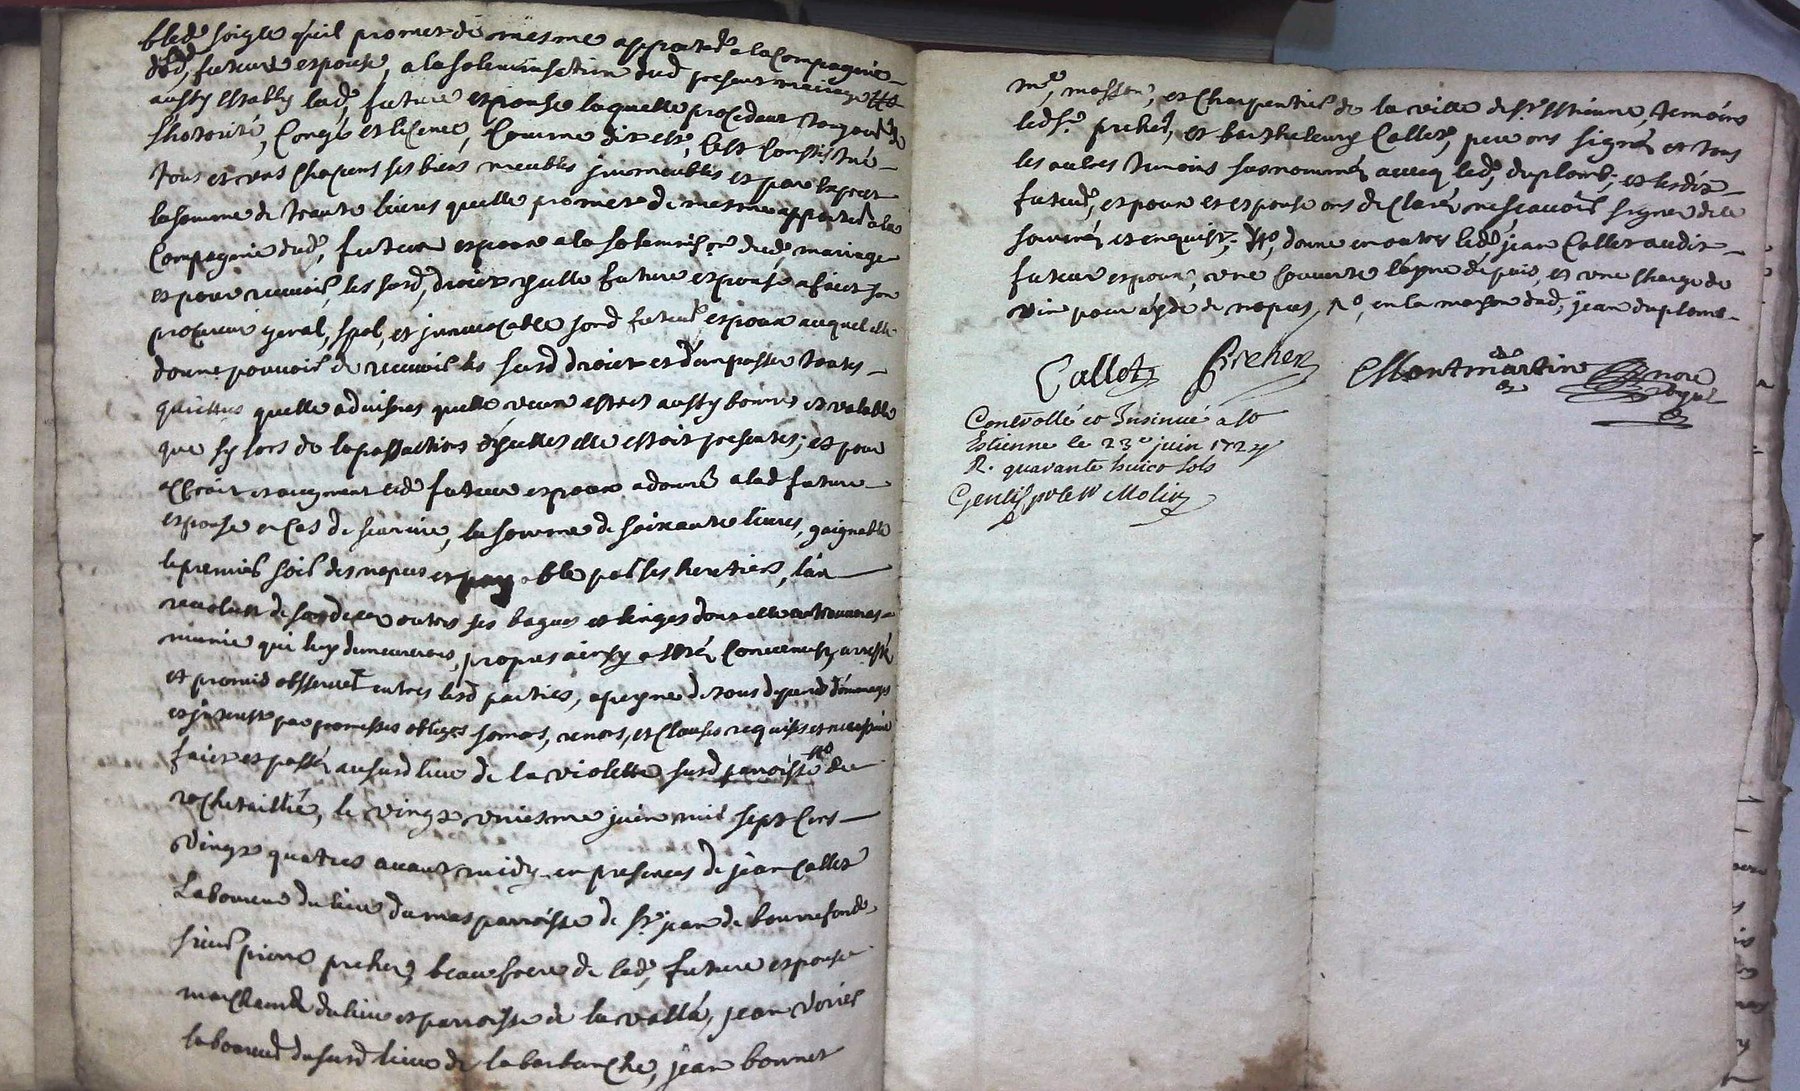 bled soigle qu'il promet de mesme apporter a la Compagnie
de lad, future espouse, a la solemnisation dud present mariage
aussy establye lad, future espouse laquelle procedant toujours de
l'hotorité, Congé et licence, Comme dit est, c'est constitué
tous et uns chacuns ses biens meubles jmmeubles et par exprez
la somme de trante livres quelle promet de mesme apporter a la
Compagnie dud, futeur espoux a la solemnison dud, mariage
et pour recevoir, les susd, droict ycelle future espouse a faict son
procureur gnral, spal, et jrrevocable sond futeur espoux auquel elle
donne pouvoir de recevoir les susd droict et d'an passer toutes
quictus quelle advisera quelle veux estres aussy bonnes et valable
que sy lors de la passactions d'ycelles elle estoit presentes; et pour
accroit et augment led futeur espoux a donné a lad future
espouse en cas de survie, la somme de soixante livres, gaignable
le premier soir des nopces et payable par ses heretiers, l'an
revolu de son deces outres ses bagues et linges dont elle ce trouveras
munie qui luy demeureront, propres ainsy a esté, Convenus, arresté
et promis observer entres lesd parties, a peyne de tous depend dommages
et jnterest par promesses obliges soms, renons, et clauses requises et necessaire
faict et passé, au susd lieu de la violette susd parroisse de
rochetaillié, le vingt uniesme juin mil sept cens
vingt quatres avant midy en presences de jean Callet
Laboureur du lieu du mas parroisse de st, jean de bonnefonds
sieur pierre preher, beau frere de lad, future espouse
marchand du lieu et parroisse de la valla, jean voriel
laboureur du susd lieu de la barbanche, jean bonnet
me, masson, et charpentier de la ville de st, estienne, temoins
led sr. preher, et barthelemy Callet, pere ons signé et tous
les autres temoins susnommés avecq led, duplomb; et lesdit
futeur, espoux et espouse ons declaré ne scavoir signer de ce
sommés et enquist; donne en outres led, jean Callet audit
futeur espoux, une couverte leyne depuis, et une charge de
vin pour ayde de nopces, en la maison dud, jean duplomb
Callet Preher Montmartin
Conterollé et Insinué a St
Estienne le 23e juin 1724
R. quarante huict sols
Molin